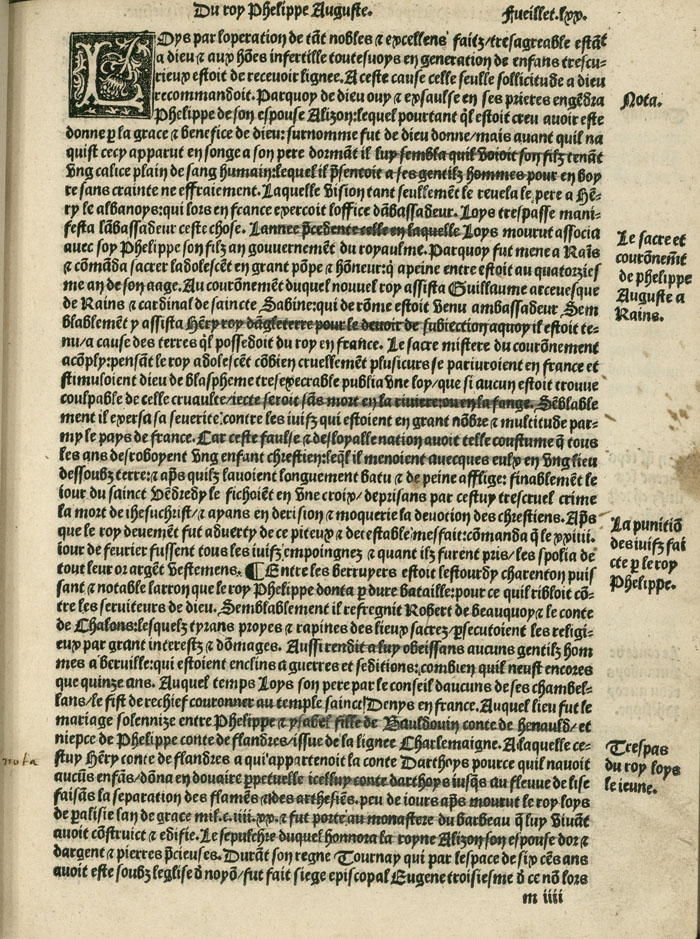 Du roy Phelippe Auguste.
Fueillet.lxx.
LOys par loperation de tāt nobles & excellens faitz/tresagreable estāt
a dieu & aux hōes infertille toutesuoys en generation de enfans trescu-
rieux estoit de receuoir lignee. A ceste cause celle seulle sollicitude a dieu
recommandoit. Parquoy de dieu ouy & exsaulse en ses prieres engēdra
Phelippe de son espouse Alizon: lequel pourtant q̄l estoit creu auoir este
donne ꝑ la grace & benefice de dieu: surnomme fut de dieu donne/mais auant quil na
quist cecy apparut en songe a son pere dormāt il luy sembla quil voioit son filz tenāt
vng calice plain de sang humain: lequel il p̄sentoit a ses gentilz hommes pour en boy
re sans crainte ne effraiement. Laquelle vision tant seullemēt le reuela le pere a Hē-
ry le albanoys: qui lors en france exercoit loffice dābassadeur. Loys trespasse mani-
festa lābassadeur ceste chose. Lannee p̄cedente celle en laquelle Loys mourut associa
auec soy Phelippe son filz an gouuernemēt du royaulme. Parquoy fut mene a Raīs
& cōmāda sacrer ladolescēt en grant pōpe & hōneur: q̄ apeine entre estoit au quatorzies
me an de son aage. Au courōnement duquel nouuel roy assista Guillaume arceuesque
de Rains & cardinal de saincte Sabine: qui de rōme estoit venu ambassadeur Sem
blablemēt y assista Hēry roy dāgleterre pour le deuoir de subiection aquoy il estoit te-
nu/a cause des terres q̄l possedoit du roy en france. Le sacre mistere du courōnement
acōply: pensāt le roy adolescēt cōbien cruellemēt plusieurs se pariuroient en france et
stimuloient dieu de blaspheme tresexecrable publia vne loy/que si aucun estoit trouue
coulpable de celle cruaulte/iecte seroit sās mort en la riuiere: ou en la fange. Sēblable
ment il exersa sa seuerite: contre les iuifz qui estoient en grant nōbre & multitude par-
my le pays de france. Car ceste faulse & desloyalle nation auoit telle coustume q̄ tous
les ans desroboyent vng enfant chrestien: leq̄l il menoient auecques eulx en vng lieu
dessoubz terre: & ap̄s quilz lauoient longuement batu & de peine afflige: finablemēt le
iour du sainct Vēdredy le fichoiēt en vne croix/deprisans par cestuy trescruel crime
la mort de ihesuchrist/& ayans en derision & moquerie la deuotion des chrestiens. Ap̄s
que le roy deuemēt fut aduerty de ce piteux & detestable mesfait: cōmāda q̄ le xxiiii.
iour de feurier fussent tous les iuifz empoingnez & quant ilz furent pris/les spolia de
tout leur or argēt vestemens. ¶ Entre les berruyers estoit lestourdy charenton puis
sant & notable larron que le roy Phelippe donta ꝑ dure bataille: pour ce quil ribloit cō-
tre les seruiteurs de dieu. Semblablement il refregnit Robert de beauquoy & le conte
de Chalons: lesquelz tyrans proyes & rapines des lieux sacrez/ꝑsecutoient les religi-
eux par grant interestz & dōmages. Aussi rendit a luy obeissans aucuns gentilz hom
mes a berville: qui estoient enclins a guerres et seditions: combien quil neust encores
que quinze ans. Auquel temps Loys son pere par le conseil daucuns de ses chambel-
lans/le fist de rechief couronner au temple sainct Denys en france. Auquel lieu fut le
mariage solennize entre Phelippe & ysabel fille de Bauldouin conte de henauld/et
niepce de Phelippe conte de flandres/issue de la lignee Charlemaigne. A laquelle ce-
stuy Hēry conte de flandres a qui appartenoit la conte Darthoys pource quil nauoit
aucūs enfās/dōna en douaire ꝑpetuelle icelluy conte darthoys iusq̄s au fleuue de lise
faisās la separation des flamēs & des arthesiēs. peu de iours ap̄s mourut le roy loys
de paralisie lan de grace mil.c.iiii.xx. & fut porte au monastere du barbeau q̄ luy viuāt
auoit cōstruict & edifie. Le sepulchre duquel honnora la royne Alizon son espouse dor &
dargent & pierres p̄cieuses. Durāt son regne Tournay qui par lespace de six cēs ans
auoit este soubz leglise d̄ noyō/fut fait siege episcopal Eugene troisiesme d̄ ce nō lors
m iiii
Nota.
Le sacre et
courōnemēt
de phelippe
Auguste a
Rains.
La punitiō
des iuifz fai
cte ꝑ le roy
Phelippe.
Trespas
du roy loys
le ieune.
nota